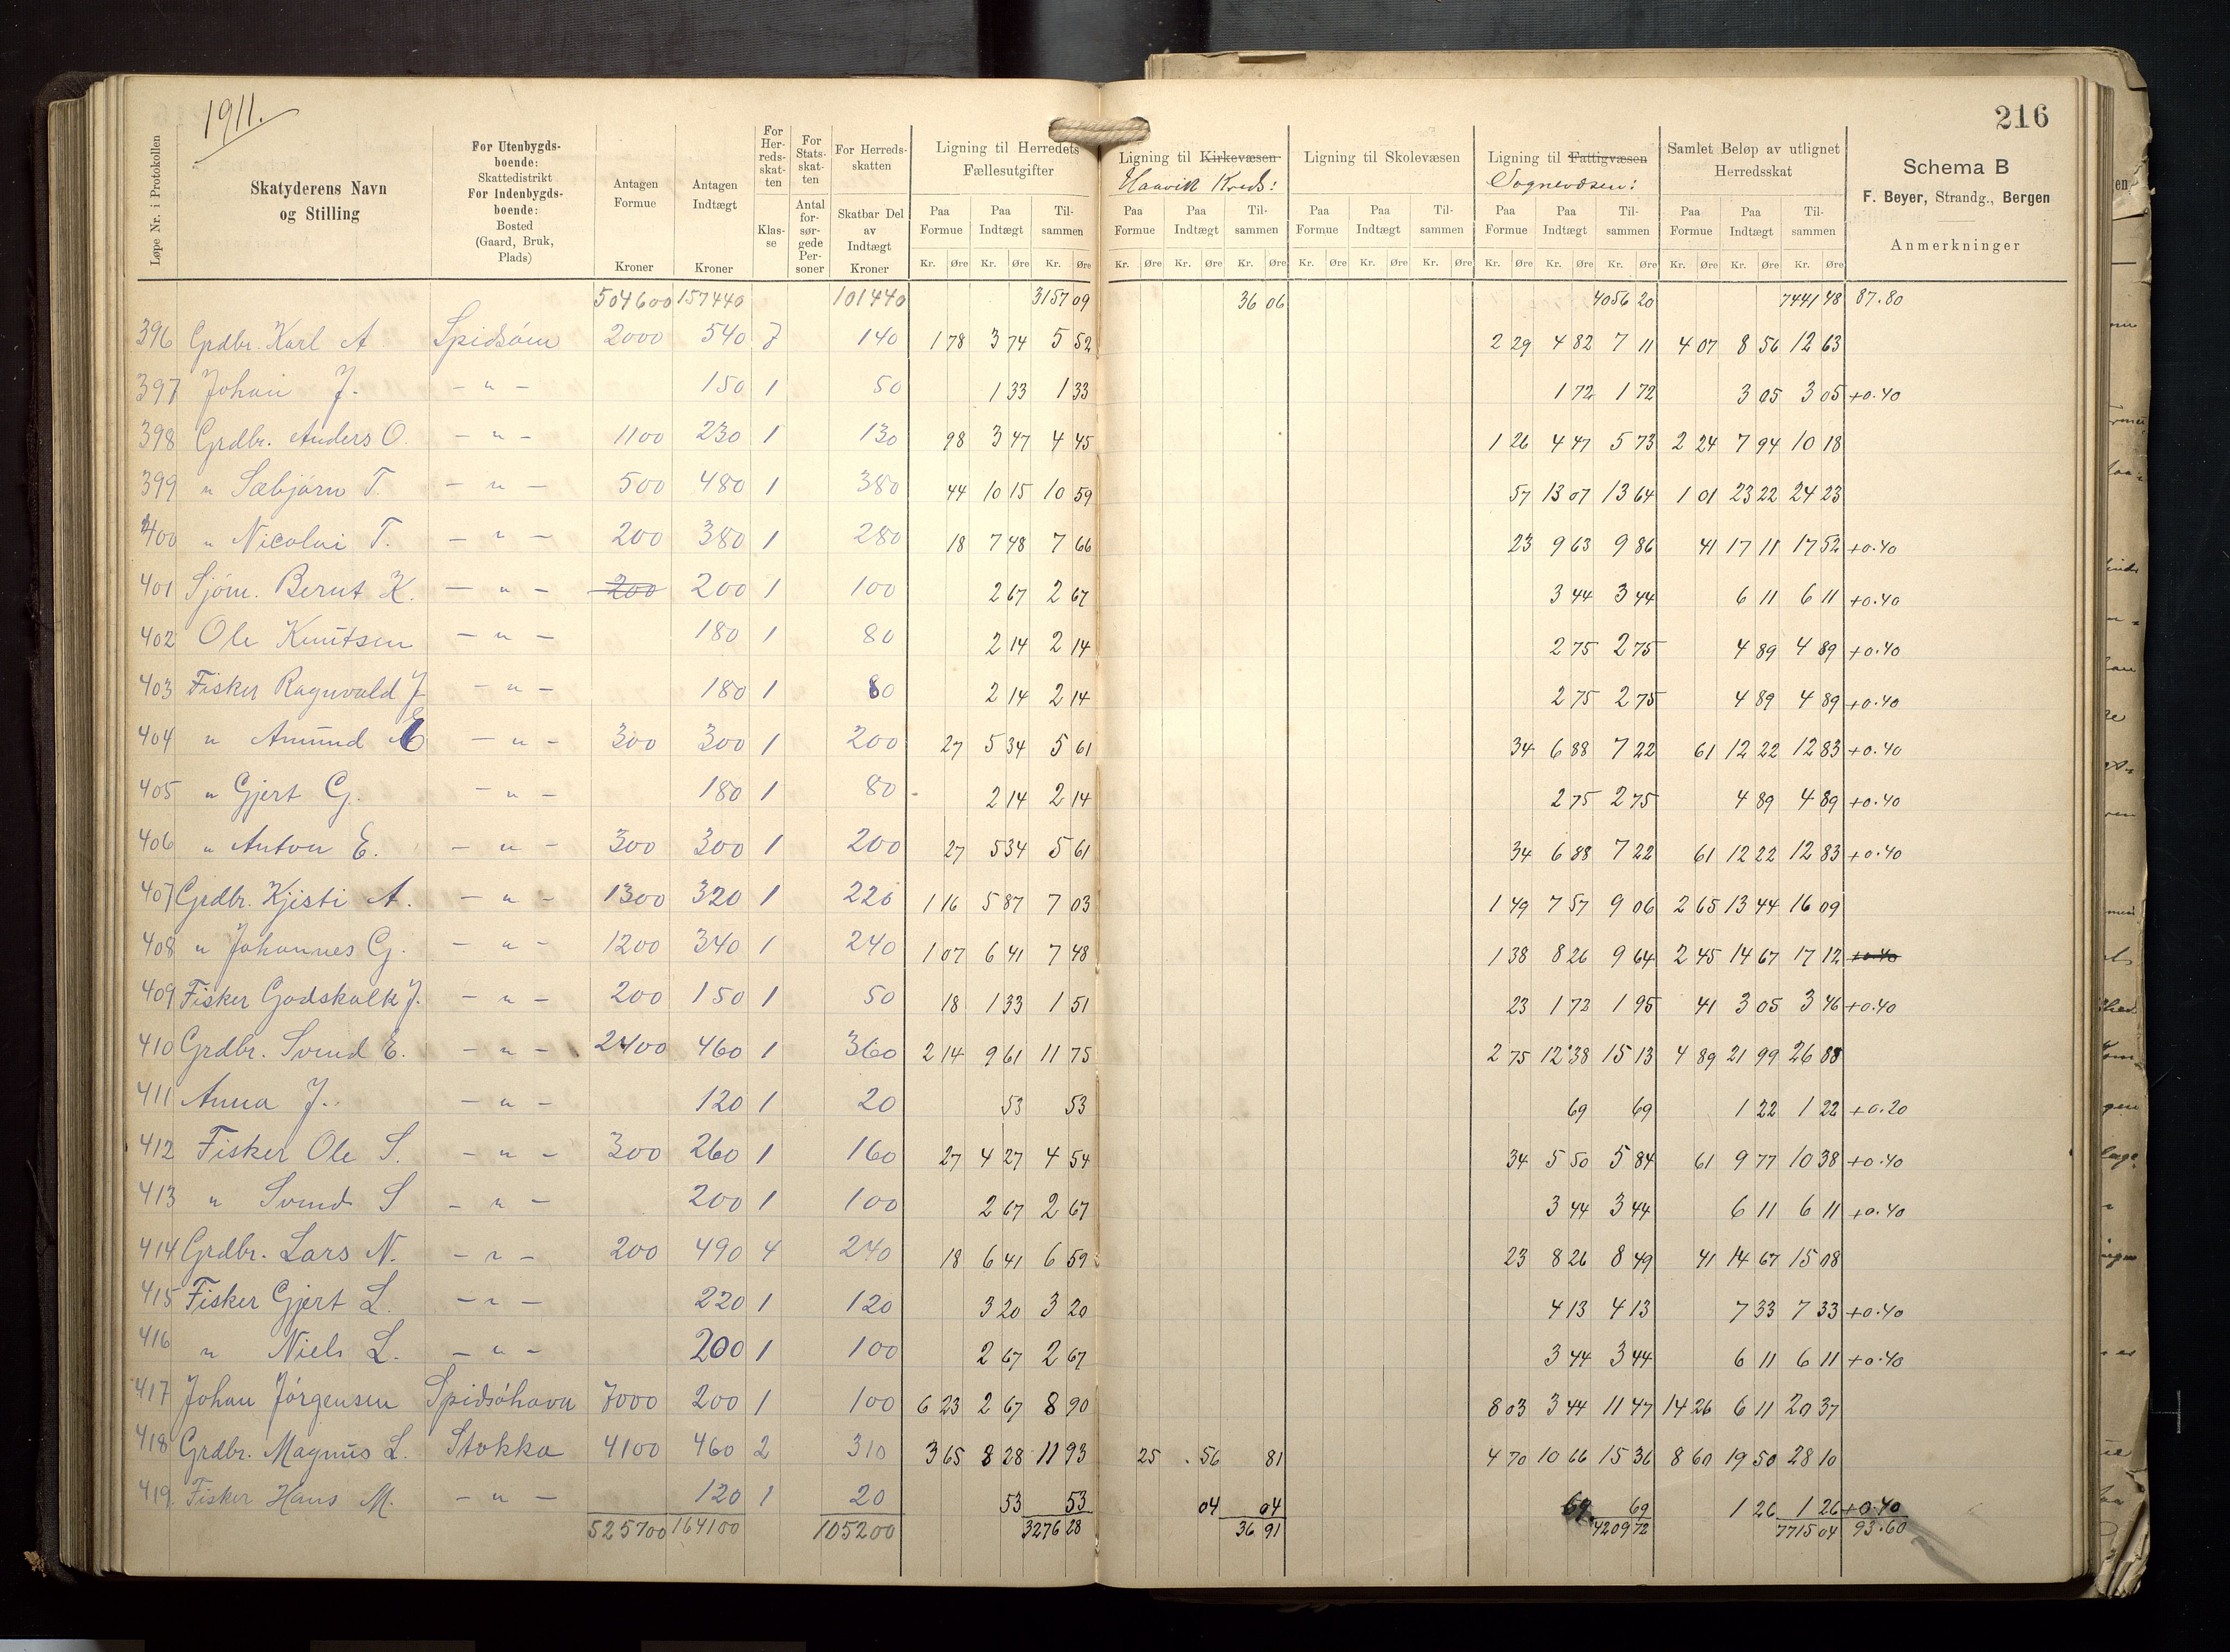 1911.
216
Løpe Nr. i Protokollen | Skatyderens Navn og Stilling | For Utenbygds-boende: Skattedistrikt For Indenbygds-boende: Bosted (Gaard, Bruk, Plads) | Antagen Formue Kroner | Antagen Indtægt Kroner | For Herreds-skatten Klasse | For Statsskatten Antal forsørgede Personer | For Herreds-skatten Skatbar Del av Indtægt Kroner | Ligning til Herredets Fællesutgifter | Ligning til Kirkevæsen Haavik Kreds: | Ligning til Skolevæsen | Ligning til Fattigvæsen Sognevæsen: | Samlet Beløp av utlignet Herredsskat | Schema B F. Beyer, Strandg., Bergen Anmerkninger
Paa Formue Paa Indtægt Tilsammen | Paa Formue Paa Indtægt Tilsammen | Paa Formue Paa Indtægt Tilsammen | Paa Formue Paa Indtægt Tilsammen | Paa Formue Paa Indtægt Tilsammen
Kr. Øre Kr. Øre Kr. Øre Kr. Øre Kr. Øre Kr. Øre Kr. Øre Kr. Øre Kr. Øre Kr. Øre Kr. Øre Kr. Øre Kr. Øre Kr. Øre Kr. Øre
504600 157440 101440 3157 09 36 06 4056 20 7441 48 87.80
396 Grdbr. Karl A. Spidsöen 2000 540 7 140 1 78 3 74 5 52 2 29 4 82 7 11 4 07 8 56 12 63
397 Johan J. - " - 150 1 50 1 33 1 33 1 72 1 72 3 05 3 05 +0.40
398 Grdbr. Anders O. - " - 1100 230 1 130 98 3 47 4 45 1 26 4 47 5 73 2 24 7 94 10 18
399 " Sæbjörn T. - " - 500 480 1 380 44 10 15 10 59 57 13 07 13 64 1 01 23 22 24 23
400 " Nicolai T. - " - 200 380 1 280 18 7 48 7 66 23 9 63 9 86 41 17 11 17 52 +0.40
401 Sjöm. Bernt K. - " - 200 200 1 100 2 67 2 67 3 44 3 44 6 11 6 11 +0.40
402 Ole Knutsen - " - 180 1 80 2 14 2 14 2 75 2 75 4 89 4 89 +0.40
403 Fisker Ragnvald J - " - 180 1 80 2 14 2 14 2 75 2 75 4 89 4 89 +0.40
404 " Amund E - " - 300 300 1 200 27 5 34 5 61 34 6 88 7 22 61 12 22 12 83 +0.40
405 " Gjert G. - " - 180 1 80 2 14 2 14 2 75 2 75 4 89 4 89 +0.40
406 " Anton E. - " - 300 300 1 200 27 5 34 5 61 34 6 88 7 22 61 12 22 12 83 +0.40
407 Grdbr. Kjisti A. - " - 1300 320 1 220 1 16 5 87 7 03 1 49 7 57 9 06 2 65 13 44 16 09
408 " Johannes G. - " - 1200 340 1 240 1 07 6 41 7 48 1 38 8 26 9 64 2 45 14 67 17 12 +0.40
409 Fisker Godskalk J. - " - 200 150 1 50 18 1 33 1 51 23 1 72 1 95 41 3 05 3 46 +0.40
410 Grdbr. Svend E. - " - 2400 460 1 360 2 14 9 61 11 75 2 75 12 38 15 13 4 89 21 99 26 88
411 Anna J. - " - 120 1 20 53 53 69 69 1 22 1 22 +0.20
412 Fisker Ole S. - " - 300 260 1 160 27 4 27 4 54 34 5 50 5 84 61 9 77 10 38 +0.40
413 " Svend S - " - 200 1 100 2 67 2 67 3 44 3 44 6 11 6 11 +0.40
414 Grdbr. Lars N. - " - 200 490 4 240 18 6 41 6 59 23 8 26 8 49 41 14 67 15 08
415 Fisker Gjert L. - " - 220 1 120 3 20 3 20 4 13 4 13 7 33 7 33 +0.40
416 " Niels L. - " - 200 1 100 2 67 2 67 3 44 3 44 6 11 6 11 +0.40
417 Johan Jörgensen Spidsöhavn 7000 200 1 100 6 23 2 67 8 90 8 03 3 44 11 47 14 26 6 11 20 37
418 Grdbr. Magnus L. Stokka 4100 460 2 310 3 65 8 28 11 93 25 . 56 81 4 70 10 66 15 36 8 60 19 50 28 10
419 Fisker Hans M. - " - 120 1 20 53 53 04 04 69 69 1 26 1 26 +0.40
525700 164100 105200 3276 28 36 91 4209 72 7715 04 93.60